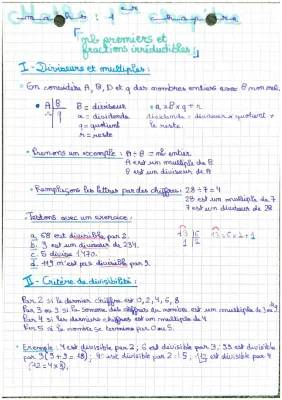 Maths : 1er chapitre
"nb premiers et
fractions irréductibles"
I - Diviseurs et multiples :
• On considère A, B, D et q des nombres entiers avec B non nul.
• A | B B = diviseur • a = B x q + r
r | q a = dividende dividende = diviseur x quotient +
q = quotient le reste.
r = reste
• Prenons un exemple : A ÷ B = nb entier
A est un multiple de B
B est un diviseur de A
• Remplaçons les lettres par des chiffres : 28 ÷ 7 = 4
28 est un multiple de 7
7 est un diviseur de 28
Testons avec un exercice :
a. 68 est divisible par 2. 13 | 6 13 = 6 x 2 + 1
b. 9 est un diviseur de 234. 1 | 2
c. 5 divise 1470.
d. 119 n'est pas divisible par 9.
II - Critère de divisibilité :
Par 2 si le dernier chiffre est 0, 2, 4, 6, 8
Par 3 ou 9 si la somme des chiffres du nombre est un multiple de 3 ou 9
Par 4 si les derniers chiffres est un multiple de 4
Par 5 si le nombre se termine par 0 ou 5.
• Exemple : 4 est divisible par 2 ; 6 est divisible par 3 ; 99 est divisible
par 9 (9 + 9 = 18) ; est divisible par : 5 ; est divisible par 4